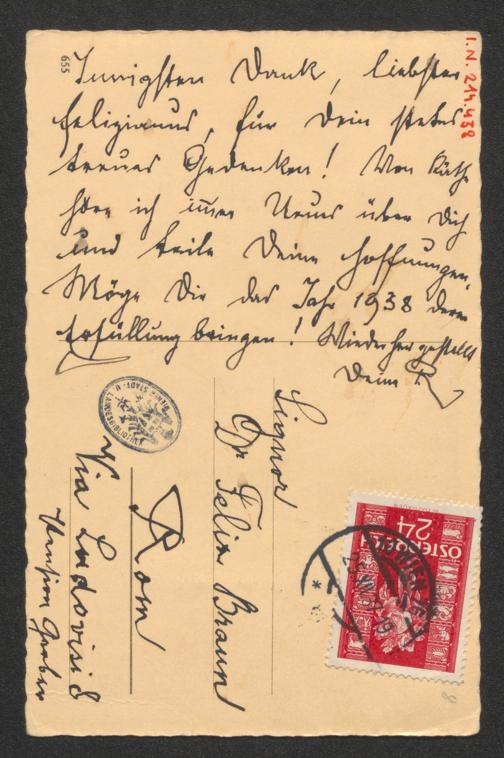 655
I.N. 214.438
Innigsten Dank, liebster
Felizianus, für Dein stets
treues Gedenken! Von Käthe
höre ich immer Neues über Dich
und teile Deine Hoffnungen.
Möge Dir das Jahr 1938 deren
Erfüllung bringen! Wiederhergestellt
Dein R
Signor
Dr Felix Braun
Rom
Via Ludovisi 8
Pension Gruber
WIENER STADT- U. LANDESBIBLIOTHEK
ÖSTERREICH
24
WIEN
8